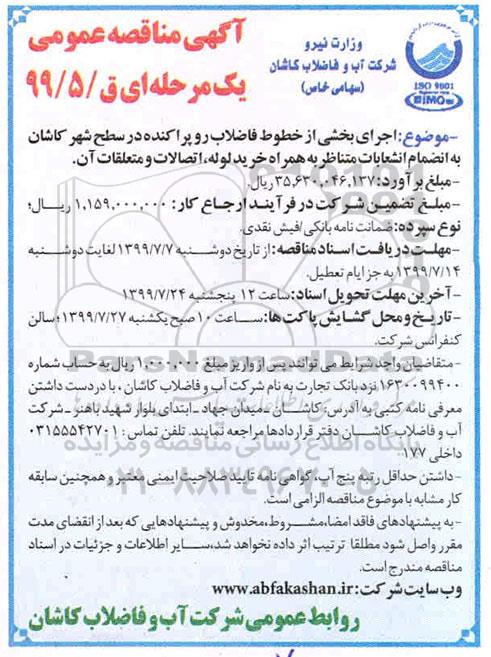 آگهی مناقصه عمومی
یک مرحله‌ای ق/۹۹/۵
وزارت نیرو
شرکت آب و فاضلاب کاشان
(سهامی خاص)
ISO 9001
IMQ
-موضوع: اجرای بخشی از خطوط فاضلاب رو پراکنده در سطح شهر کاشان
به انضمام انشعابات متناظر به همراه خرید لوله، اتصالات و متعلقات آن.
-مبلغ برآورد: ۳۵,۶۳۰,۰۴۶,۱۳۷ ریال.
-مبلغ تضمین شرکت در فرآیند ارجاع کار: ۱,۱۵۹,۰۰۰,۰۰۰ ریال؛
نوع سپرده: ضمانت نامه بانکی/فیش نقدی.
-مهلت دریافت اسناد مناقصه: از تاریخ دوشنبه ۱۳۹۹/۷/۷ لغایت دوشنبه
۱۳۹۹/۷/۱۴ به جز ایام تعطیل.
-آخرین مهلت تحویل اسناد: ساعت ۱۲ پنجشنبه ۱۳۹۹/۷/۲۴
-تاریخ و محل گشایش پاکت‌ها: ساعت ۱۰ صبح یکشنبه ۱۳۹۹/۷/۲۷؛ سالن
کنفرانس شرکت.
-متقاضیان واجد شرایط می توانند پس از واریز مبلغ ۱,۰۰۰,۰۰۰ ریال به حساب شماره
۱۶۳۰۰۹۹۴۰۰ نزد بانک تجارت به نام شرکت آب و فاضلاب کاشان، با در دست داشتن
معرفی نامه کتبی به آدرس: کاشان-میدان جهاد-ابتدای بلوار شهید باهنر-شرکت
آب و فاضلاب کاشان دفتر قراردادها مراجعه نمایند. تلفن تماس: ۰۳۱۵۵۵۴۲۷۰۱
داخلی ۱۷۷.
-داشتن حداقل رتبه پنج آب، گواهی نامه تایید صلاحیت ایمنی معتبر و همچنین سابقه
کار مشابه با موضوع مناقصه الزامی است.
-به پیشنهادهای فاقد امضا، مشروط، مخدوش و پیشنهادهایی که بعد از انقضای مدت
مقرر واصل شود مطلقا ترتیب اثر داده نخواهد شد، سایر اطلاعات و جزئیات در اسناد
مناقصه مندرج است.
وب سایت شرکت: www.abfakashan.ir
روابط عمومی شرکت آب و فاضلاب کاشان